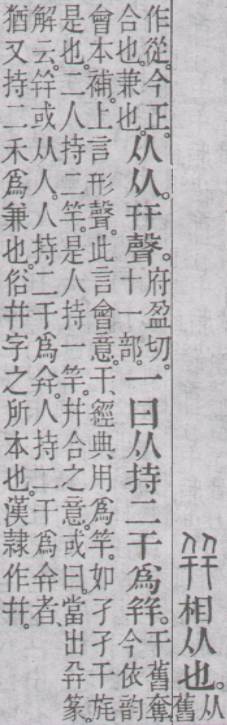 相从也。从舊
作從。今正。合也。兼也。从从幵聲。府盈切十一部。一曰从持二干爲幷。干舊奪今依韵
會本補。上言形聲。此言會意。干、經典用爲竿。如孑孑干旄
是也。二人持二竿。是人持一竿。幷合之意。或曰。當出篆。
解云。幷或从人。人持二干爲。人持二干爲者、
猶又持二禾爲兼也。俗并字之所本也。漢隷作并。